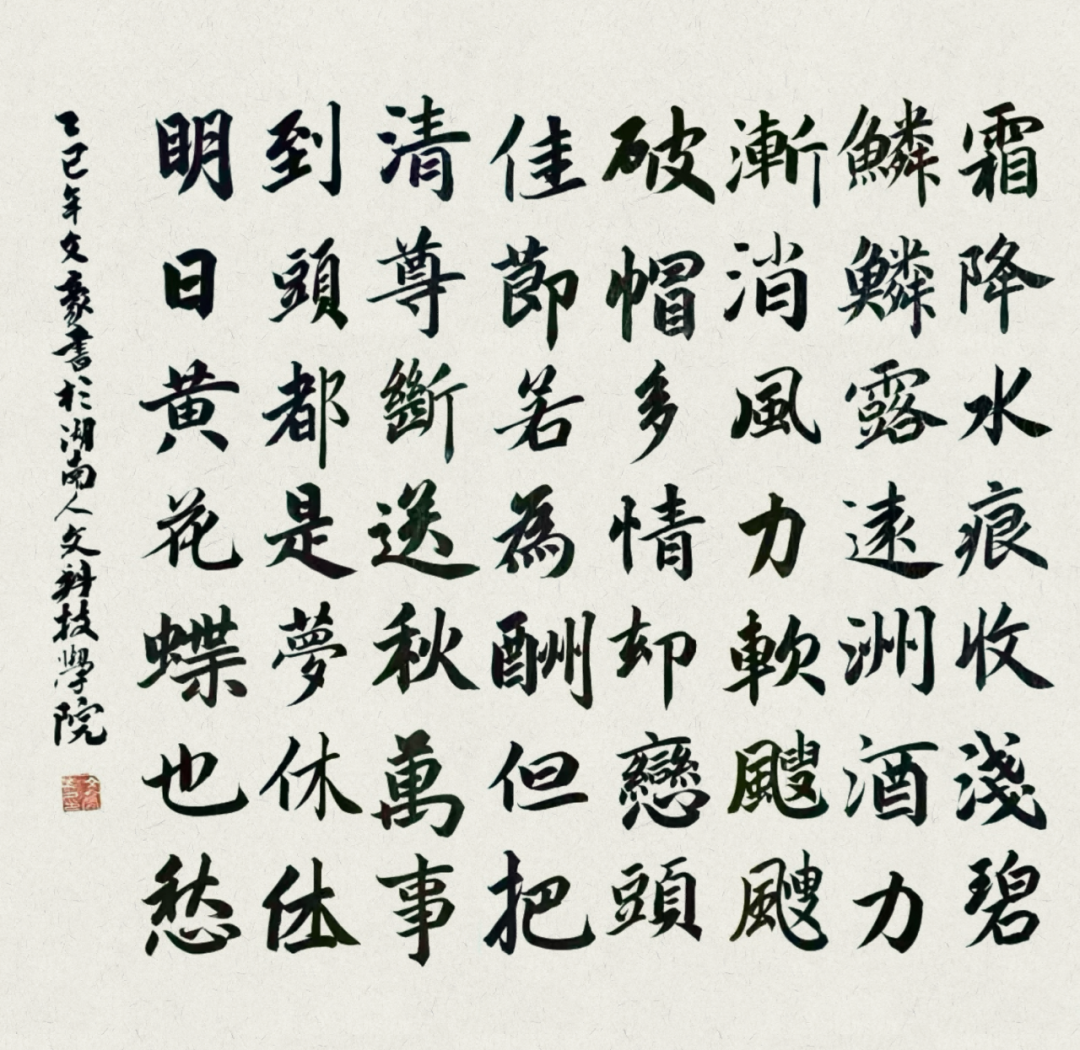 霜降水痕收淺碧
鱗鱗露遠洲酒力
漸消風力軟颼颼
破帽多情却戀頭
佳節若為酬但把
清尊斷送秋萬事
到頭都是夢休休
明日黃花蝶也愁
乙巳年文豪書於湖南人文科技學院